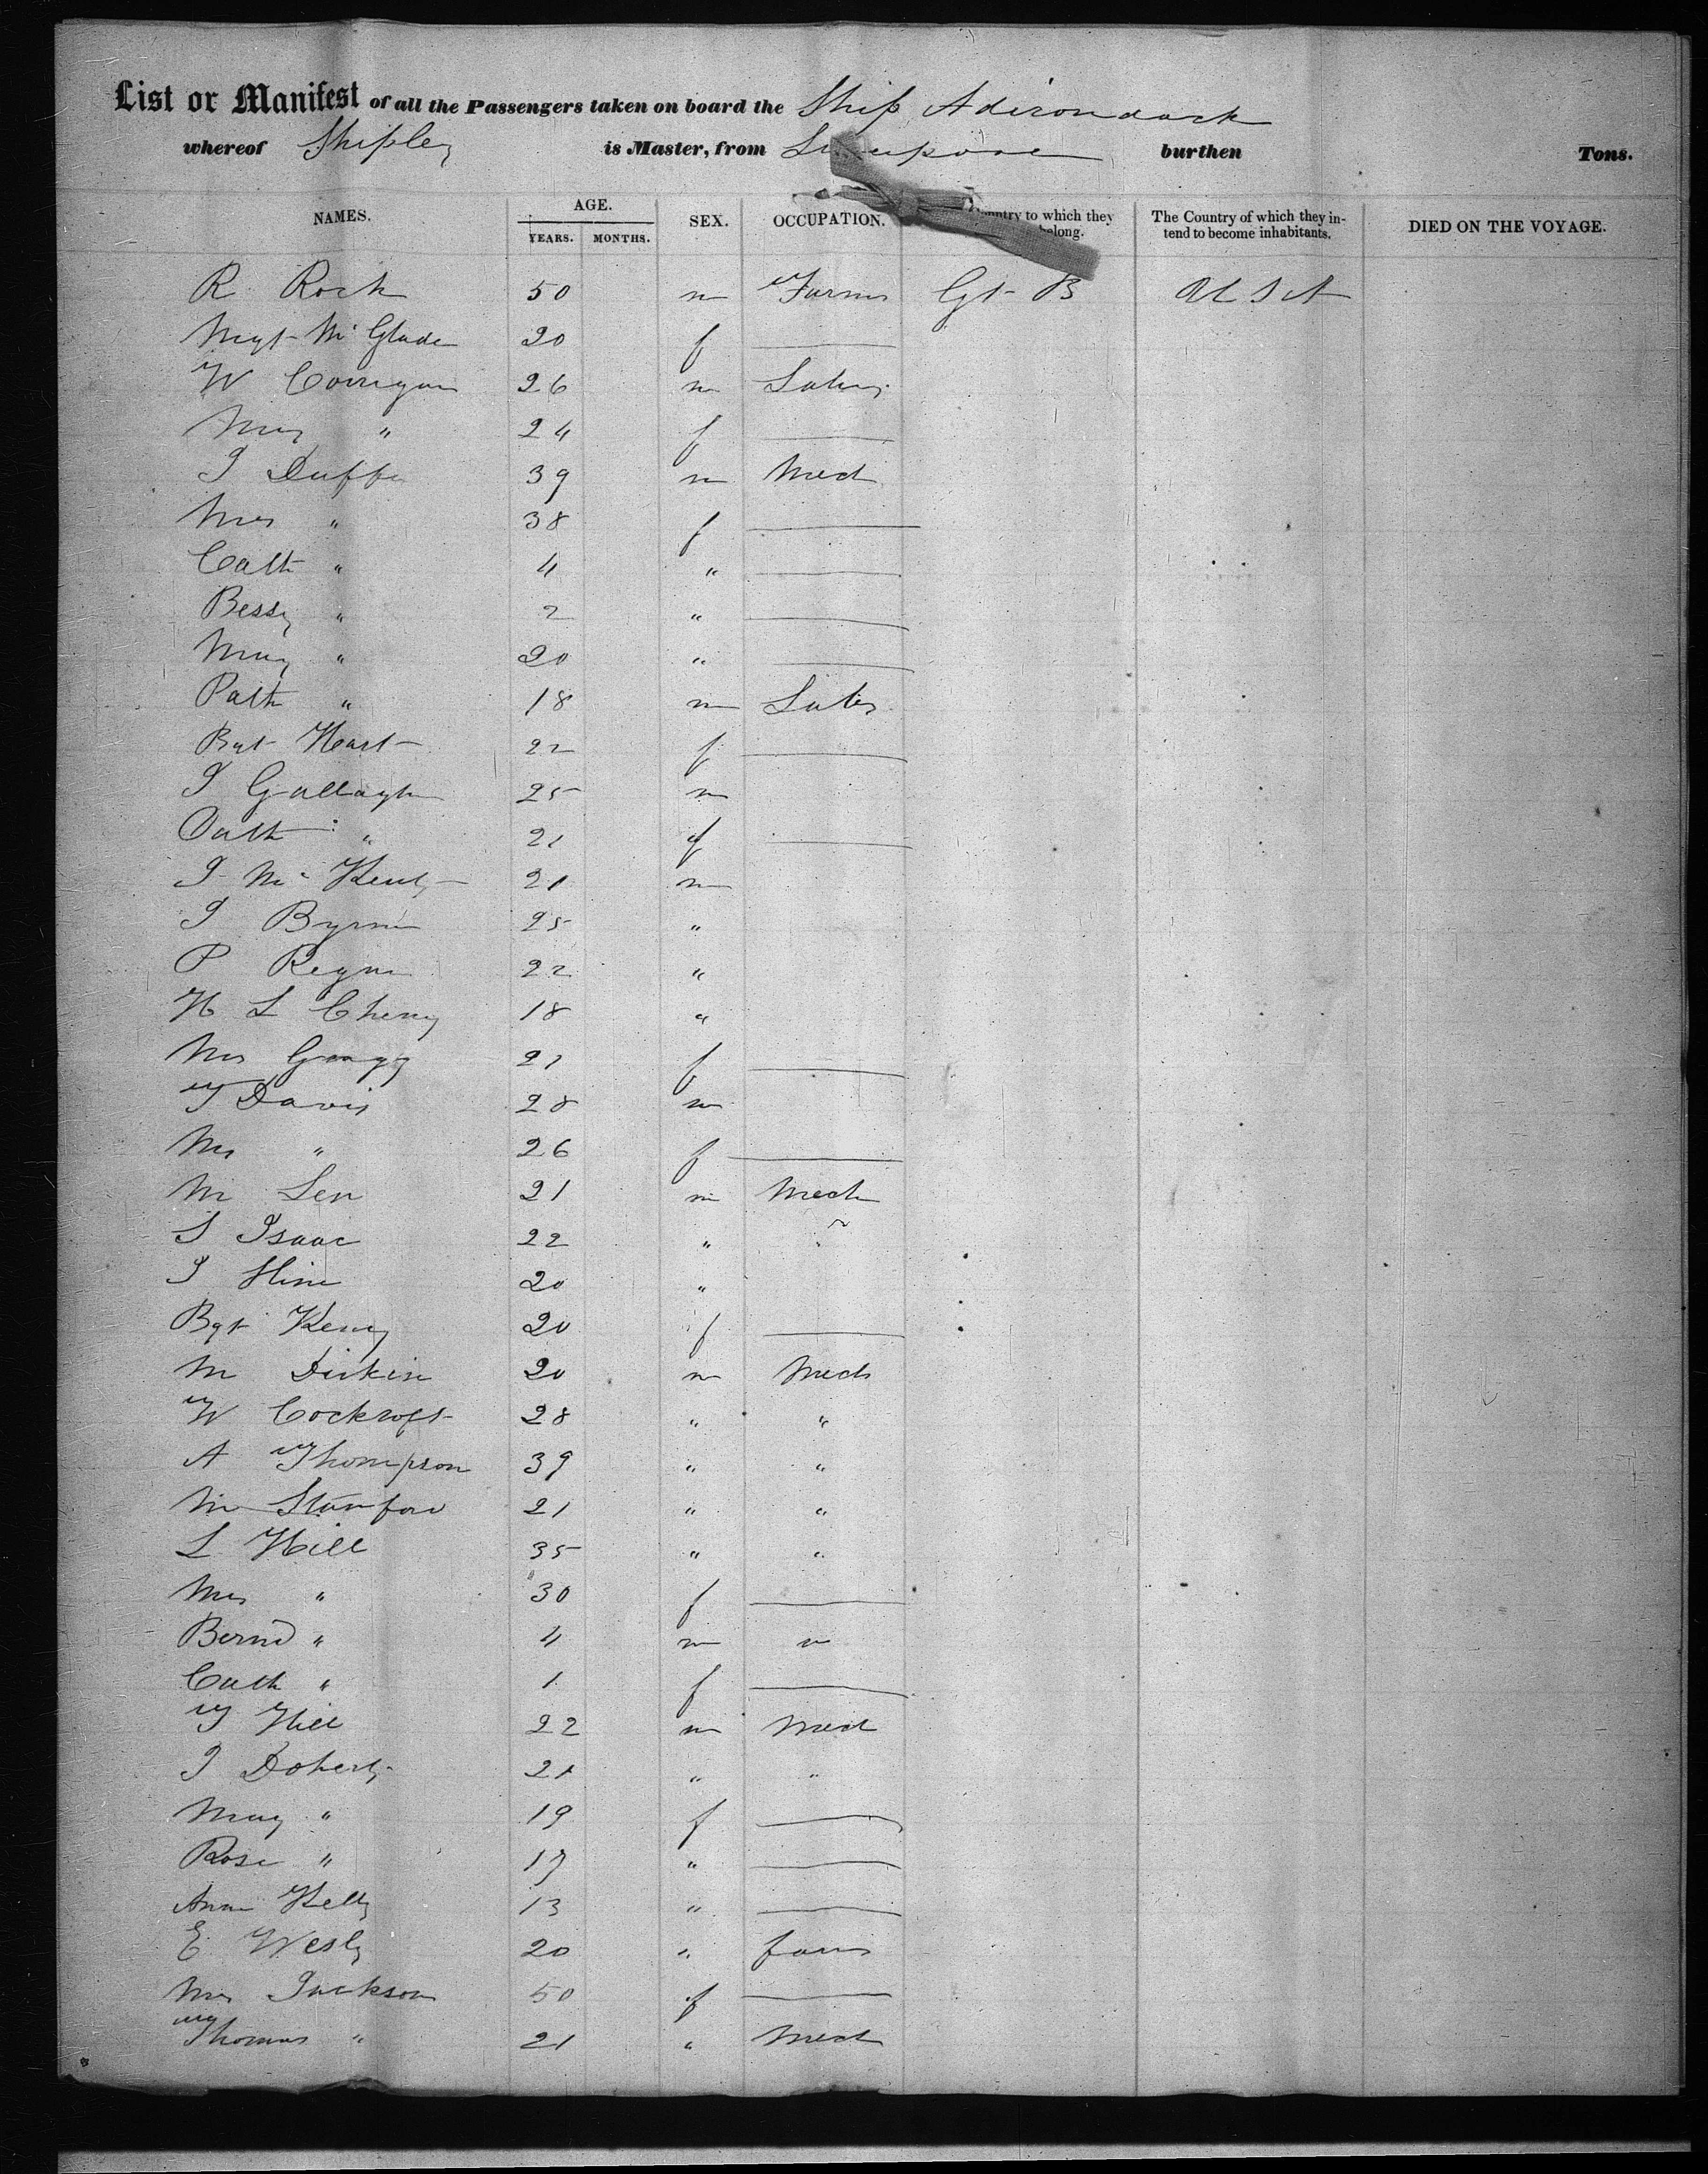 List or Manifest of all the Passengers taken on board the Ship Adirondack
whereof Shipley is Master, from burthen Tons.
NAMES. AGE. YEARS. MONTHS. SEX. OCCUPATION. Country to which they belong. The Country of which they intend to become inhabitants. DIED ON THE VOYAGE.
R Rock 50 m Farmr Gt B U S A
Mgt McGlade 20 f
W Corrigan 26 m Labr
Mary " 24 f
J Duffy 39 m Mech
Mrs " 38 f
Cath " 4 "
Bessy " 2 "
Mary " 20 "
Patk " 18 m Labr
Bgt Hart 22 f
J Gallaghr 25 m
Cath " 21 f
J Mc 21 m
J Byrne 25 "
P Regan 22 "
H L Cheny 18 "
Mrs 21 f
T Davis 28 m
Mrs " 26 f
M Len 21 m Mech
S Isaac 22 "
J 20 "
Bgt Kenny 20 f
M 20 m Mech
W Cockroft 28 " "
A Thompson 39 " "
M Stanford 21 " "
L Hill 35 " "
Mrs " 30 f
Bernd " 4 m "
Cath " 1 f
T Hill 22 m Mech
J Doherty 21 " "
Mary " 19 f
Rose " 17 "
Ann Kelly 13 "
E Wesly 20 " farm
Mrs Jackson 50 f
Thomas " 21 " Mech